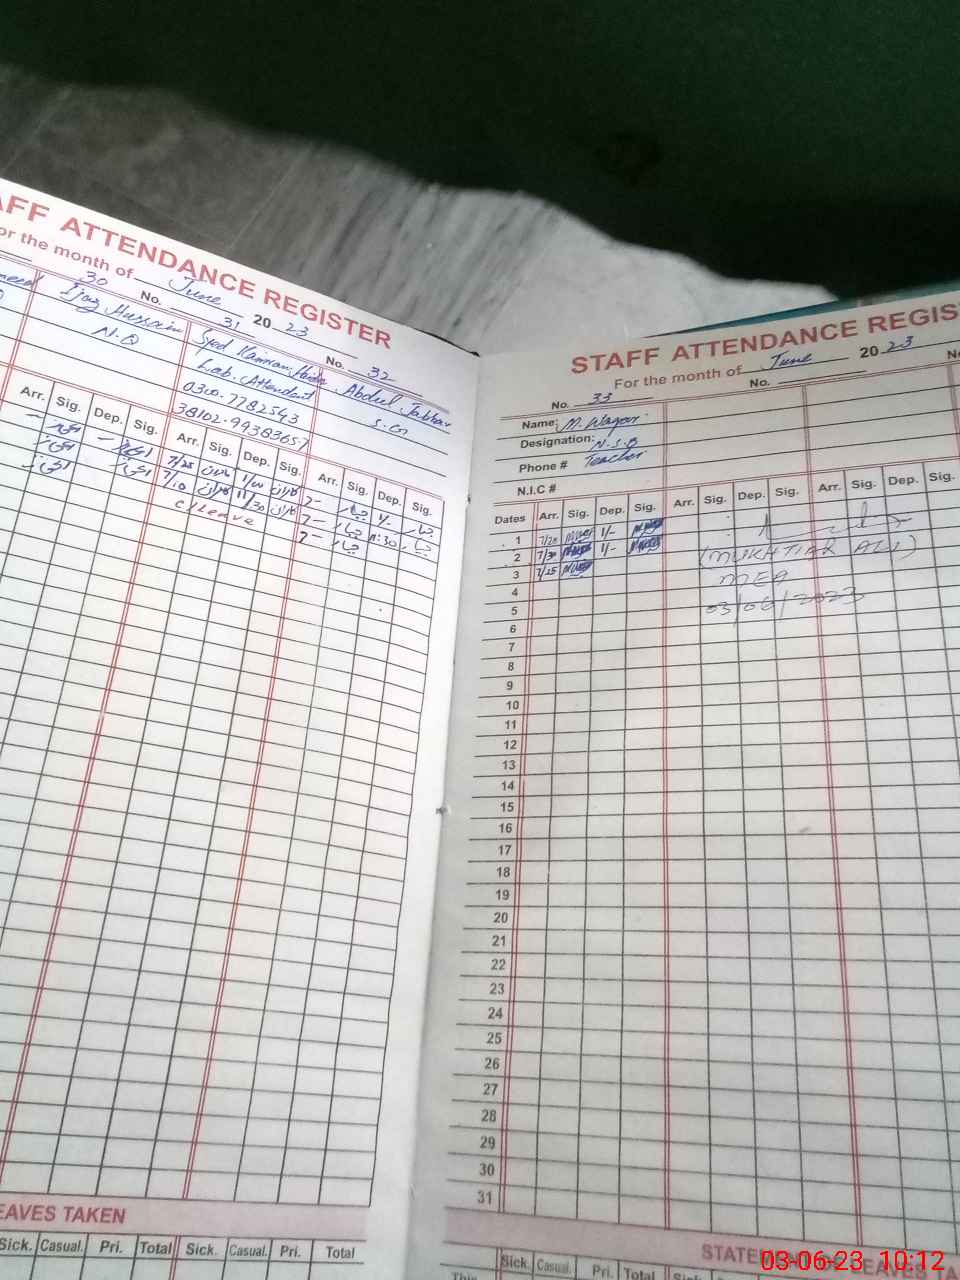 STAFF ATTENDANCE REGISTER
For the month of June 2023
30
No. 31
No. 32
Ijaz Hussain
N.Q
Syed Kamran
Lab. Attendant
0300.7782543
38102.99383657
Abdul Jabbar
Arr. Sig. Dep. Sig. Arr. Sig. Dep. Sig. Arr. Sig. Dep. Sig.
7/25 کامران 1/00 کامران 7- جبار 1/- جبار
7/10 کامران 11/30 کامران 7- جبار 11:30 جبار
c/Leave 7- جبار
LEAVES TAKEN
Sick. Casual. Pri. Total Sick. Casual. Pri. Total
STAFF ATTENDANCE REGIS
For the month of June 2023
No. 33 No.
Name: M. Waqar
Designation: N.S.B
Phone # Teacher
N.I.C #
Dates Arr. Sig. Dep. Sig. Arr. Sig. Dep. Sig. Arr. Sig. Dep. Sig.
1 7/25 1/-
2 7/30 1/-
3 7/25
(MUKHTIAR ALI)
MEA
03/06/2023
4
5
6
7
8
9
10
11
12
13
14
15
16
17
18
19
20
21
22
23
24
25
26
27
28
29
30
31
STATEMENT OF LEAVES TA
Sick. Casual. Pri. Total Sick.
This
03-06-23 10:12